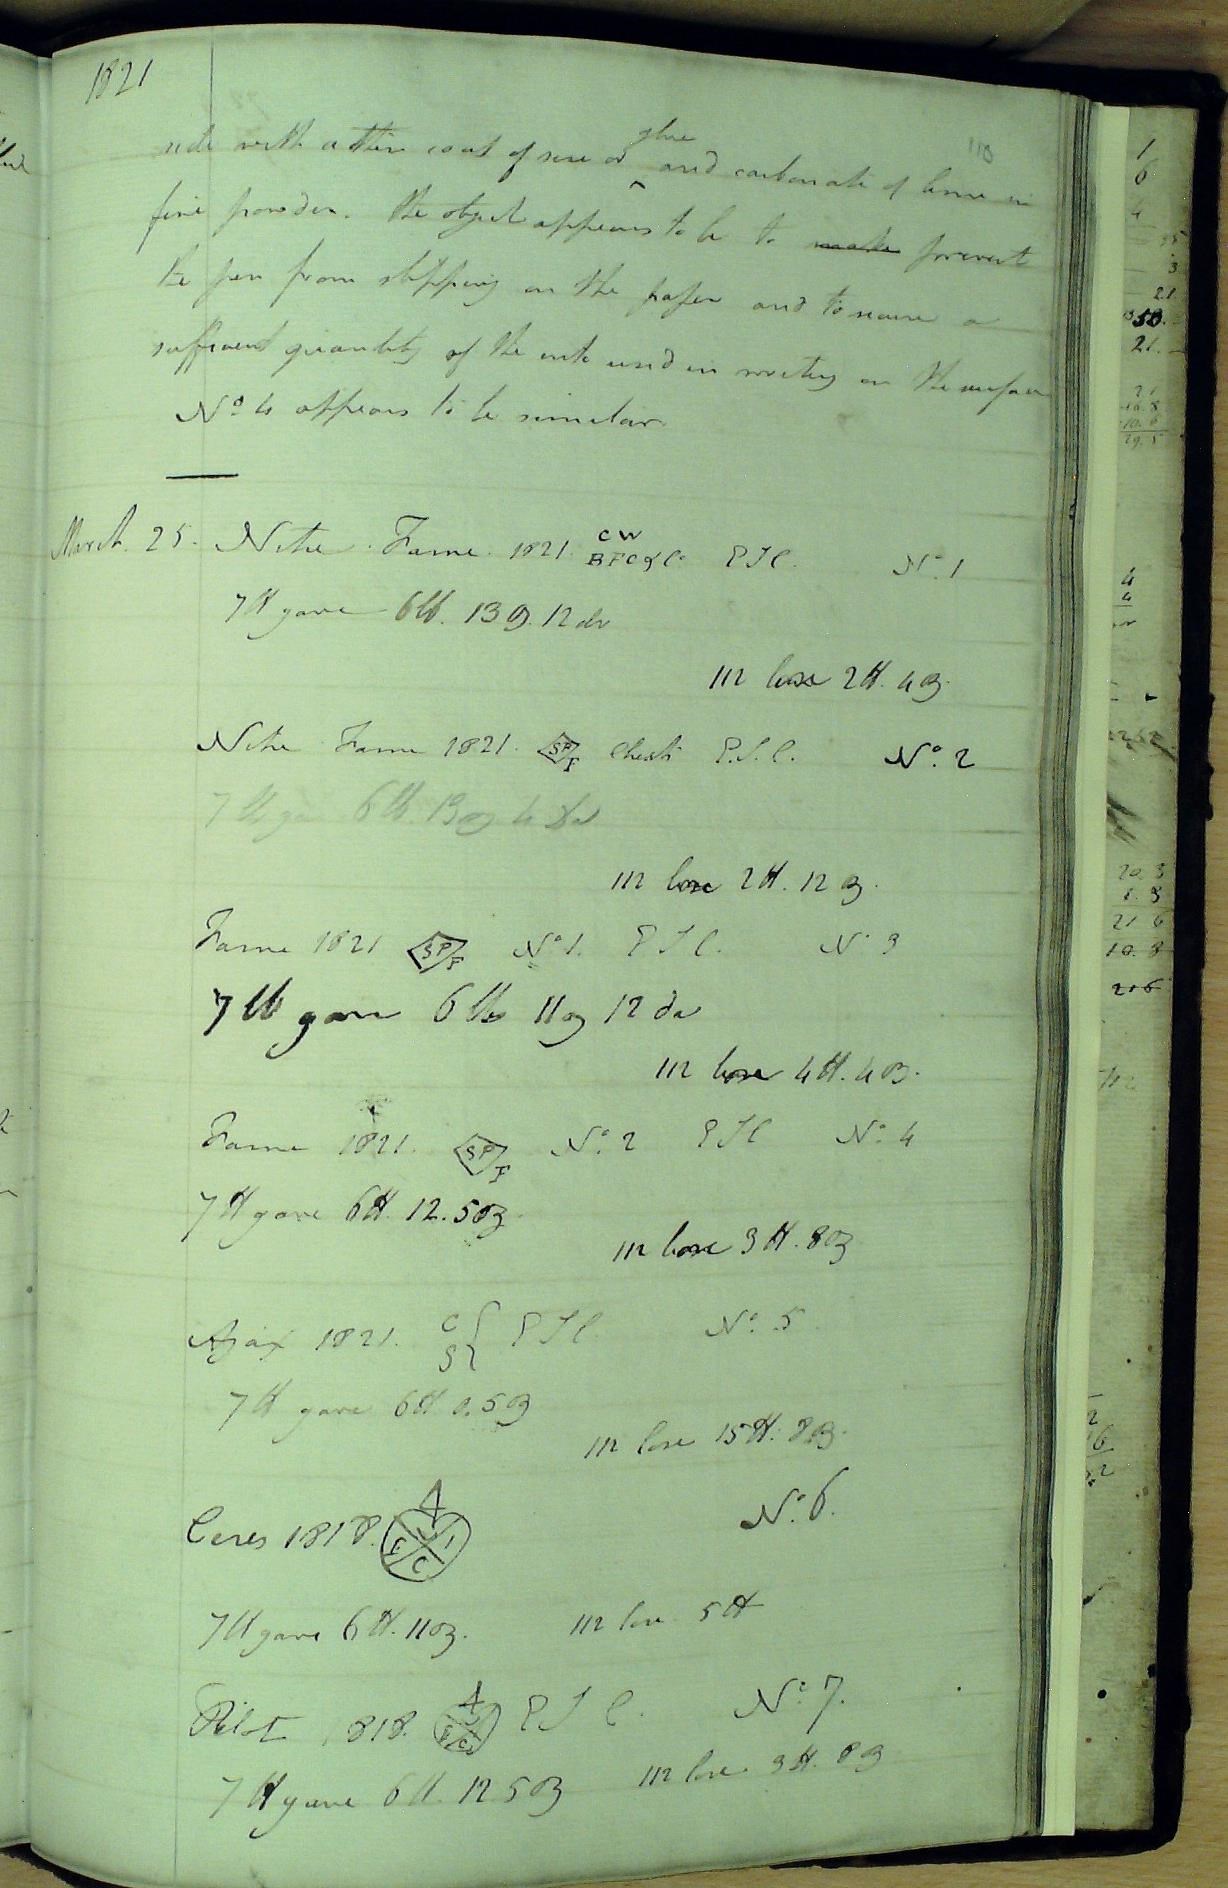 1821
110
side with a thin coat of size or glue and carbonate of lime in
fine powder. The object appears to be to make prevent
the pen from slipping on the paper and to secure a
sufficient quantity of the ink used in writing on the surface
No 4 appears to be similar
March 25. Nitre Fame 1821. CW BFC&Co E I C. No. 1
7 lb gave 6 lb. 13 oz. 12 dr
112 lose 2 lb. 4 oz.
Nitre Fame 1821. SP F Chests E. I. C. No. 2
7 lb gave 6 lb. 13 oz 4 dr
112 lose 2 lb. 12 oz.
Fame 1821 SP F No 1. E I C. No 3
7 lb gave 6 lbs 11 oz 12 dr
112 lose 4 lb. 4 oz.
Fame 1821. SP F No. 2 E I C No. 4
7 lb gave 6 lb. 12.5 oz
112 lose 3 lb. 8 oz
Ajax 1821. C S E I C. No. 5
7 lb gave 6 lb 0.5 oz
112 lose 15 lb. 8 oz.
Ceres 1818. 4 E I C No. 6.
7 lb gave 6 lb. 11 oz. 112 lose 5 lb
Pilot 1818. 4 E I C. No. 7.
7 lb gave 6 lb. 12 5 oz 112 lose 3 lb. 8 oz